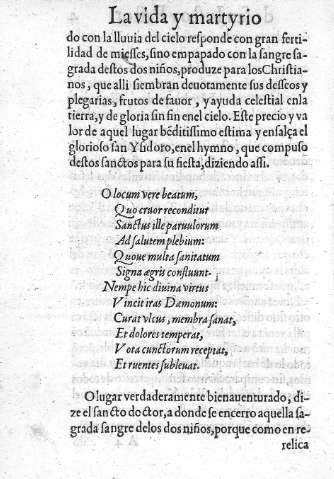 La vida y martyrio
do con la lluvia del cielo responde con gran ferti-
lidad de miesses, sino empapado con la sangre sa-
grada destos dos niños, produze para los Christia-
nos, que alli siembran deuotamente sus desseos y
plegarias, frutos de fauor, y ayuda celestial en la
tierra, y de gloria sin fin en el cielo. Este precio y va
lor de aquel lugar bẽditissimo estima y ensalça el
glorioso san Ysidoro, en el hymno, que compuso
destos sanctos para su fiesta, diziendo assi.
O locum vere beatum,
Quo cruor reconditur
Sanctus ille paruulorum
Ad salutem plebium:
Quoue multa sanitatum
Signa agris constunt.
Nempe hic diuina virtus
Vincit iras Dæmonum:
Curat vlcus, membra sanat,
Et dolores temperat,
Vota cunctorum receptat,
Et ruentes subleuat.
O lugar verdaderamente bienauenturado, di-
ze el sancto doctor, a donde se encerro aquella sa-
grada sangre de los dos niños, porque como en re-
relica